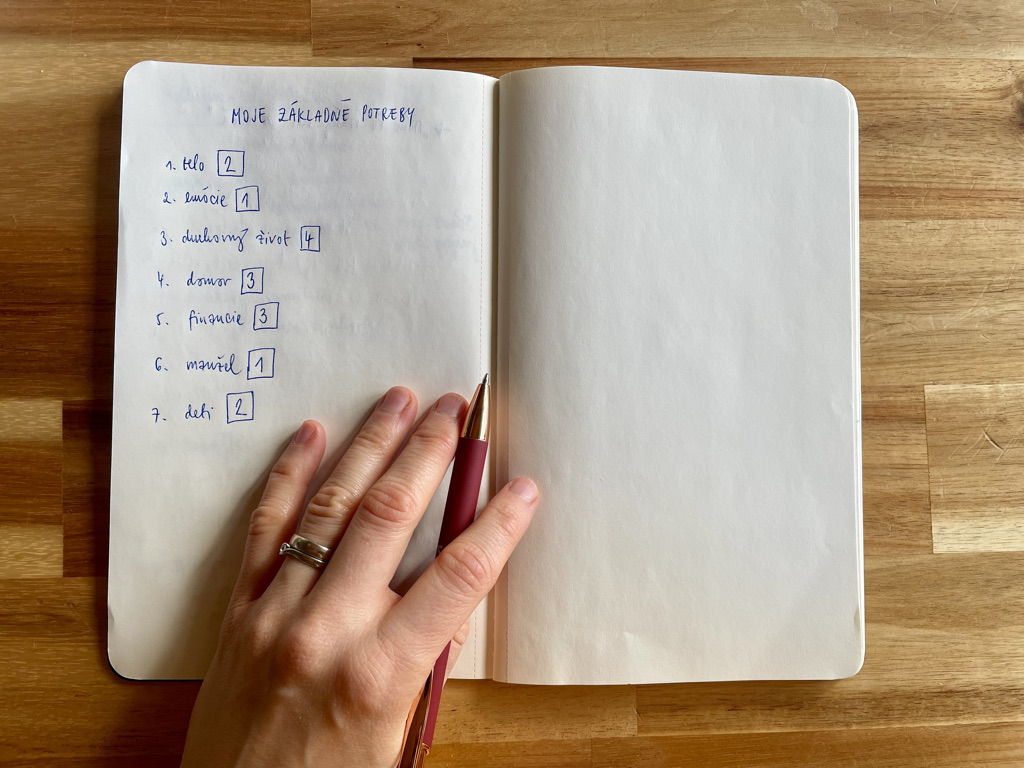 MOJE ZÁKLADNÉ POTREBY
1. telo 2
2. emócie 1
3. duhovný život 4
4. domov 3
5. financie 3
6. manžel 1
7. deti 2